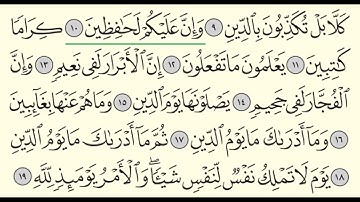 كَلَّا بَلْ تُكَذِّبُونَ بِالدِّينِ ۝٩ وَإِنَّ عَلَيْكُمْ لَحَافِظِينَ ۝١٠ كِرَامًا
كَٰتِبِينَ ۝١١ يَعْلَمُونَ مَا تَفْعَلُونَ ۝١٢ إِنَّ الْأَبْرَارَ لَفِي نَعِيمٍ ۝١٣ وَإِنَّ
الْفُجَّارَ لَفِي جَحِيمٍ ۝١٤ يَصْلَوْنَهَا يَوْمَ الدِّينِ ۝١٥ وَمَا هُمْ عَنْهَا بِغَآئِبِينَ
۝١٦ وَمَآ أَدْرَىٰكَ مَا يَوْمُ الدِّينِ ۝١٧ ثُمَّ مَآ أَدْرَىٰكَ مَا يَوْمُ الدِّينِ
۝١٨ يَوْمَ لَا تَمْلِكُ نَفْسٌ لِّنَفْسٍ شَيْـًٔا ۖ وَالْأَمْرُ يَوْمَئِذٍ لِّلَّهِ ۝١٩